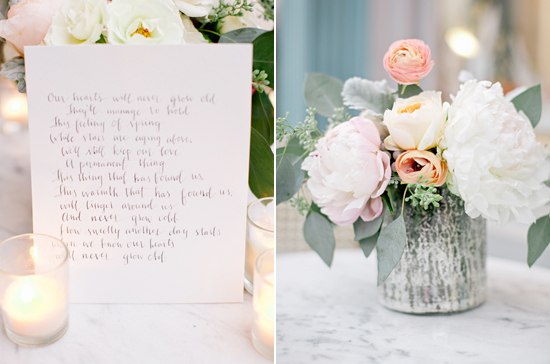 Our hearts will never grow old
They'll manage to hold
This feeling of spring
While stars are aging above,
We'll still keep our love
A permanent thing
This thing that has found us,
This warmth that has found us,
will linger around us
And never grow old
How sweetly another day starts
when we know our hearts
will never grow old